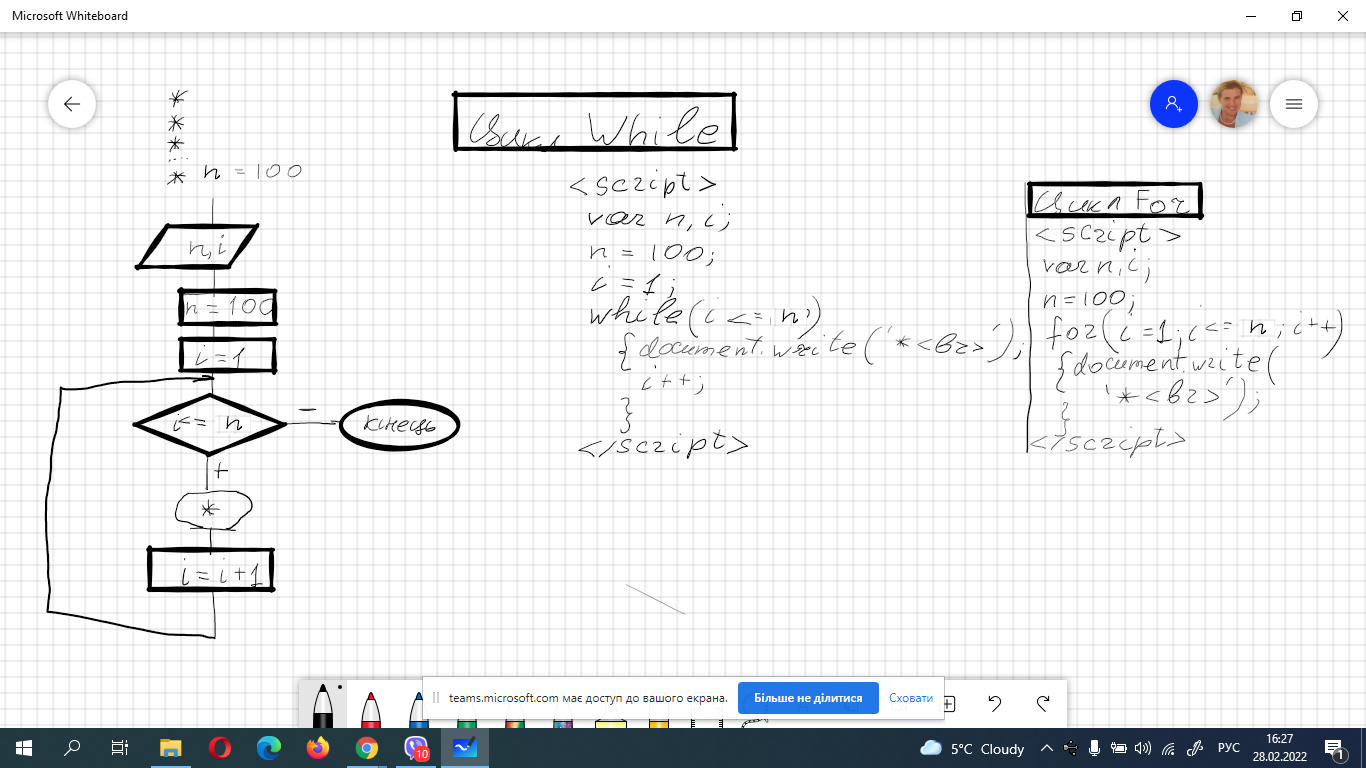 Microsoft Whiteboard
*
*
*
...
* n = 100
n, i
n = 100
i = 1
i <= n
–
кінець
+
*
i = i + 1
Цикл While
<script>
var n, i;
n = 100;
i = 1;
while(i <= n)
{document.write('*<br>');
i++;
}
</script>
Цикл For
<script>
var n, i;
n = 100;
for(i = 1; i <= n; i++)
{document.write(
'*<br>');
}
</script>
teams.microsoft.com має доступ до вашого екрана.
Більше не ділитися
Сховати
10
5°C Cloudy
РУС
16:27
28.02.2022
1